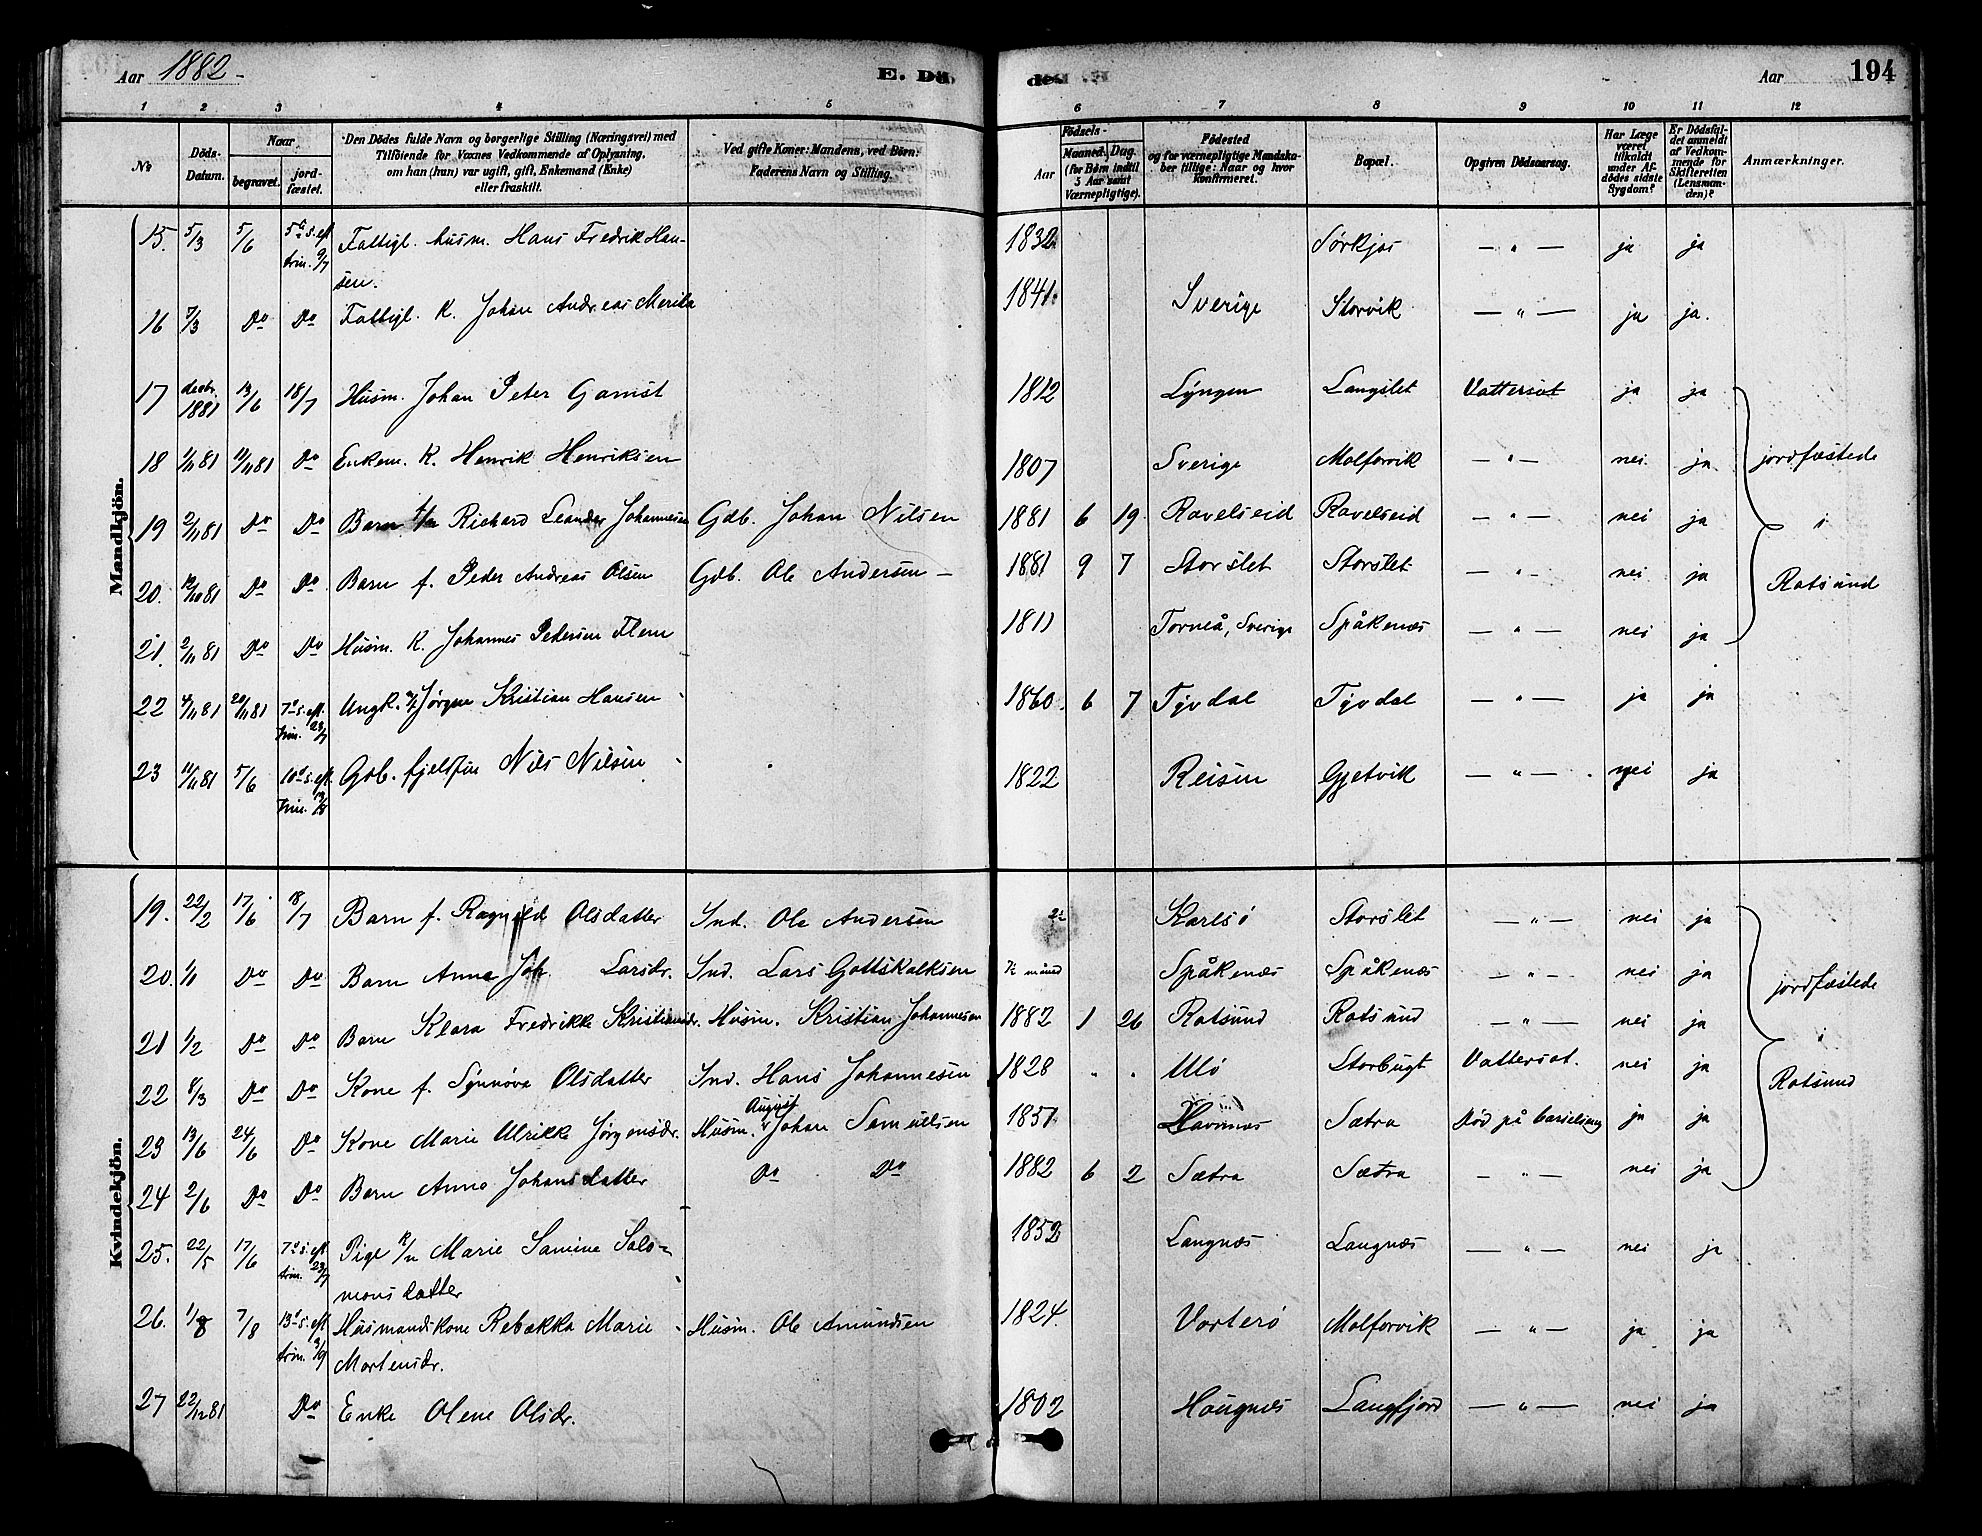 Aar 1882- E. Dö. de. Aar 194
1 2 3 4 5 6 7 8 9 10 11 12
No Döds-Datum. Naar begravet. jord-fæstet. Den Dödes fulde Navn og borgerlige Stilling (Næringsvei) med Tilföiende for Voxnes Vedkommende af Oplysning, om han (hun) var ugift, gift, Enkemand (Enke) eller fraskilt. Ved gifte Koner: Mandens, ved Börn: Faderens Navn og Stilling. Födsels- Aar Maaned. Dag. (for Börn indtil 5 Aar samt Værnepligtige). Födested og for værnepligtige Mandska-ber tillige: Naar og hvor Konfirmeret. Bopæl. Opgiven Dödsaarsag. Har Læge været tilkaldt under Af-dödes sidste Sygdom? Er Dödsfal-det anmeldt af Vedkom-mende for Skifteretten (Lensman-den)? Anmærkninger.
Mandkjön.
15. 5/3 5/6 5te s. eft. trin. 9/7 Fattigl. husm. Hans Fredrik Han-sen. 1832 Sørkjos — " — ja ja
16 7/3 Do Do Fattigl. K. Johan Andreas Merila 1841. Sverige Storvik — " — ja ja.
17 decbr. 1881 13/6 18/7 Husm. Johan Peter Gamst 1812 Lyngen Langslet Vattersot ja ja
18 1/11 81 11/11 81 Do Enkem. K. Henrik Henriksen 1807 Sverige Molforvik — " — nei ja jordfæstede
19 2/11 81 Do Do Barn Richard Leander Johannesen Gdb. Johan Nilsen 1881 6 19 Ravelseid Ravelseid — " — nei ja i
20. 12/10 81 Do Do Barn f. Peder Andreas Olsen Gdb. Ole Andersen — 1881 9 7 Storslet Storslet — " — nei ja Rotsund
21. 2/11 81 Do Do Husm. K. Johannes Pedersen Flem 1811 Torneå, Sverige Spåkenæs — " — nei ja
22 4/11 81 20/11 81 7de s. eft. trin. 23/7 Ungk. Jørgen Kristian Hansen 1860. 6 7 Tyvdal Tyvdal — " — ja ja
23 11/11 81 5/6 10de s. eft. trin. 13/8 Gdb. fjeldfin Nils Nilsen 1822 Reisen Gjetvik — " — nei ja
Kvindekjön.
19. 22/2 17/6 18/7 Barn f. Ragnild Olsdatter Ind. Ole Andersen Karlsö Storslet — " — nei ja
20. 1/1 Do Do Barn Anna Joh. Larsdr. Ind. Lars Gottskalksen 1/2 måned Spåkenæs Spåkenæs — " — nei ja jordfæstede
21 1/2 Do Do Barn Klara Fredrikke Kristiansdr. Husm. Kristian Johannesen 1882 1 26 Rotsund Rotsund — " — nei ja i
22 8/3 Do Do Kone f. Synnøva Olsdatter Ind. Hans Johannesen 1828 " " Ulö Storbugt Vattersot. nei ja Rotsund
23 13/6 24/6 Do Kone Marie Ulrikke Jørgensdr. Husm. August Johan Samuelsen 1851. Havnnæs Sætra Död på barselseng ja ja
24 2/6 Do Do Barn Anna Johansdatter Do Do 1882 6 2 Sætra Sætra — " — nei ja
25. 22/5 17/6 7de s. eft. trin. 23/7 Pige K/n Marie Samine Salo-monsdatter 1852 Langnæs Langnæs — " — nei ja
26. 1/8 7/8 13de s. eft. trin. 3/9 Husmandskone Rebækka Marie Mortensdr. Husm. Ole Amundsen 1824. Vorterö Molforvik — " — ja ja
27 22/12 81 Do Enke Olene Olsdr. 1802 Haugnæs Langfjord — " — nei ja